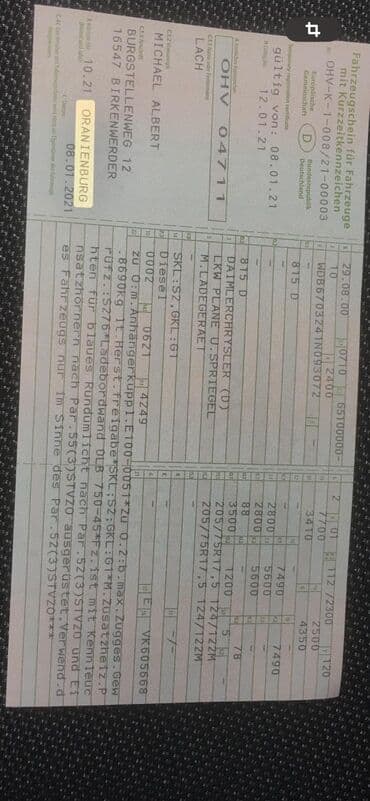 Fahrzeugschein für Fahrzeuge
mit Kurzzeitkennzeichen
Nr. OHV-K-1-008/21-00003
Europäische
Gemeinschaft
D
Bundesrepublik
Deutschland
gültig von: 08.01.21
12.01.21
OHV 04711
LACH
MICHAEL ALBERT
BURGSTELLENWEG 12
16547 BIRKENWERDER
10.21
ORANIENBURG
08.01.2021
29.08.00 0710 65100000-
TO 2400
WDB6703241N093072 -
815 D
-
-
815 D
DAIMLERCHRYSLER (D)
LKW PLANE U.SPRIEGEL
M.LADEGERAET
-
SKL:S2,GKL:G1
Diesel
0002 0621 4249
2 01 112 /2300 120
7100 2500
3410 4350
- - -
- 7490 7490
2800 5600 -
2800 5600 -
88 - 78
3500 1200 5 -
205/75R17,5 124/122M
205/75R17,5 124/122M
-
- -/-
-
- E VK605668
zu O:m.Anhängerkuppl.E100-0051*zu O.2:b.max.Zugges.Gew
.8690kg lt.Herst.freigabe*SKL:S2;GKL:G1*M.Zusatzheiz.P
rüfz.:S276*Ladebordwand DLB 750-45*Fz.ist mit Kennleuc
hten für blaues Rundumlicht nach Par.52(3)STVZO und Ei
nsatzhörnern nach Par.55(3)STVZO ausgerüstet.Verwend.d
es Fahrzeugs nur im Sinne des Par.52(3)STVZO***